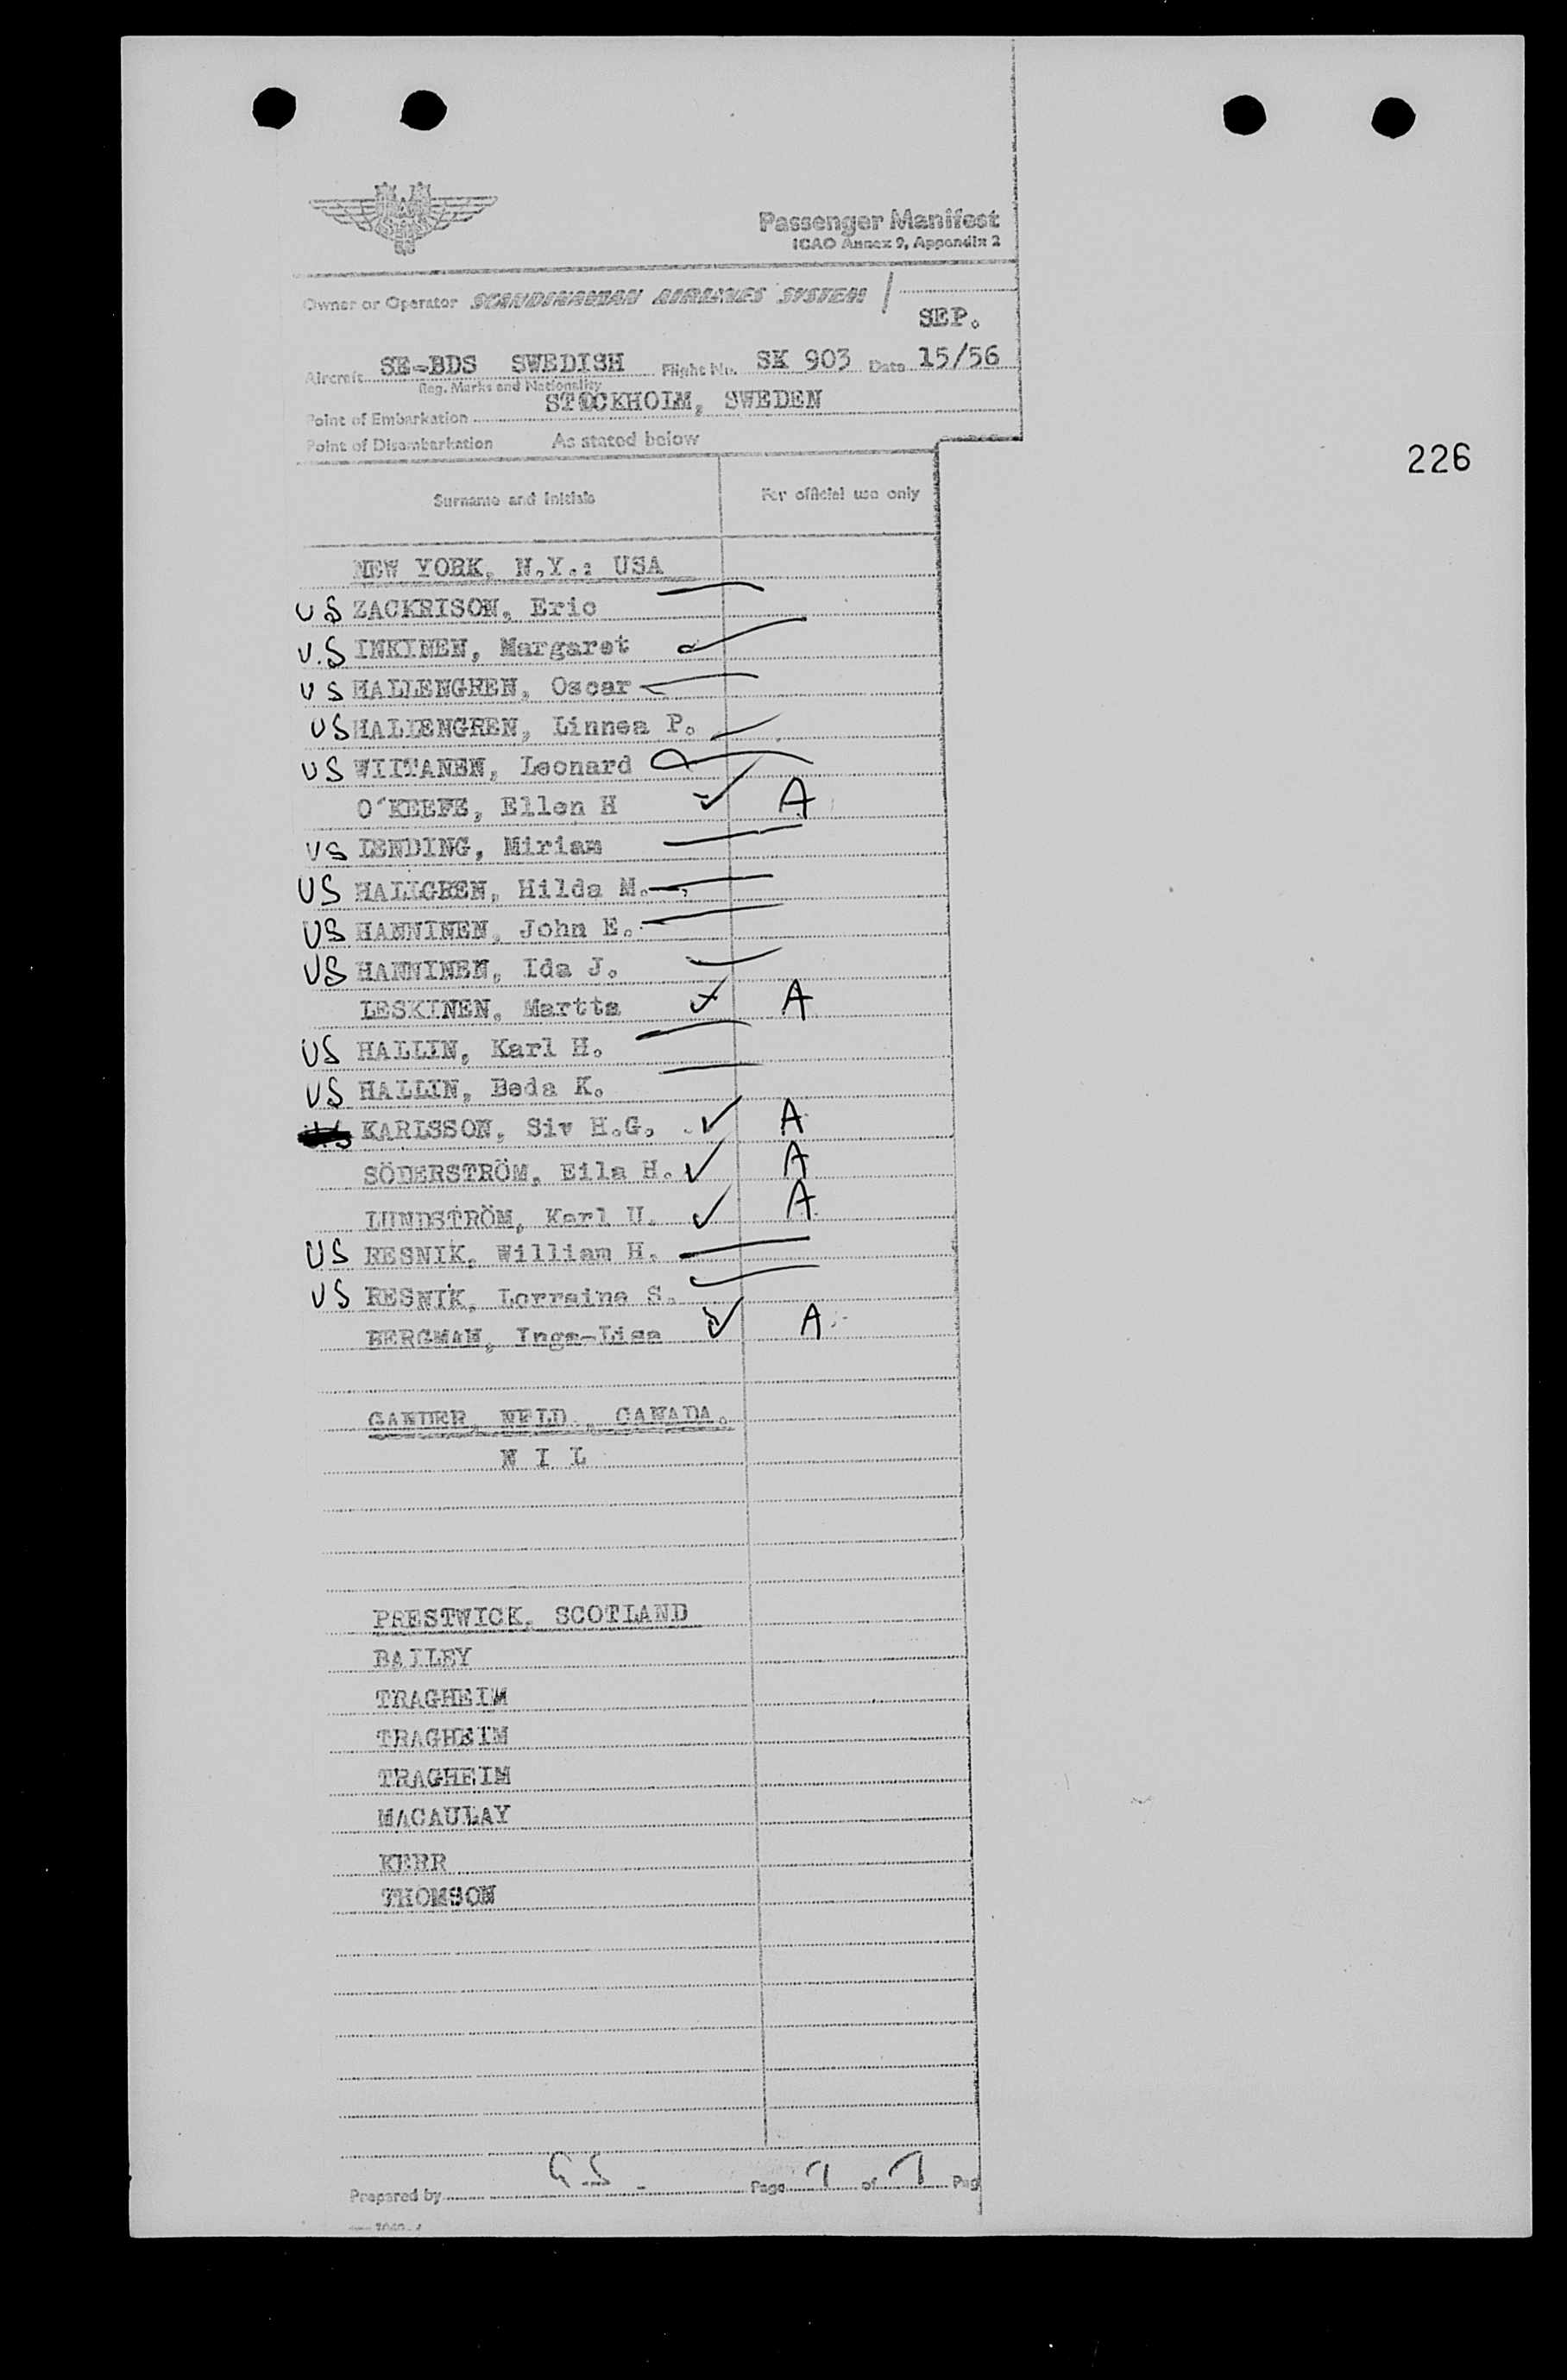 Passenger Manifest
ICAO Annex 9, Appendix 2
Owner or Operator SCANDINAVIAN AIRLINES SYSTEM
SEP.
Aircraft SE-BDS SWEDISH Flight No. SK 903 Date 15/56
Reg. Marks and Nationality
Point of Embarkation STOCKHOLM, SWEDEN
Point of Disembarkation As stated below
226
Surname and Initials For official use only
NEW YORK, N.Y.: USA
US ZACKRISON, Eric
U.S INKINEN, Margaret
US HALLENGREN, Oscar
US HALLENGREN, Linnea P.
US WIITANEN, Leonard
O'KEEFE, Ellen H A
US LENDING, Miriam
US HALLGREN, Hilda M.
US HANNINEN, John E.
US HANNINEN, Ida J.
LESKINEN, Martta A
US HALLIN, Karl H.
US HALLIN, Beda K.
KARLSSON, Siv H.G. A
SÖDERSTRÖM, Eila H. A
LUNDSTRÖM, Karl U. A
US RESNIK, William H.
US RESNIK, Lorraine S.
BERGMAN, Inga-Lisa A
GANDER, NFLD., CANADA.
N I L
PRESTWICK, SCOTLAND
BAILEY
TRAGHEIM
TRAGHEIM
TRAGHEIM
MACAULAY
KERR
THOMSON
Prepared by GS Page 1 of 1 Pag